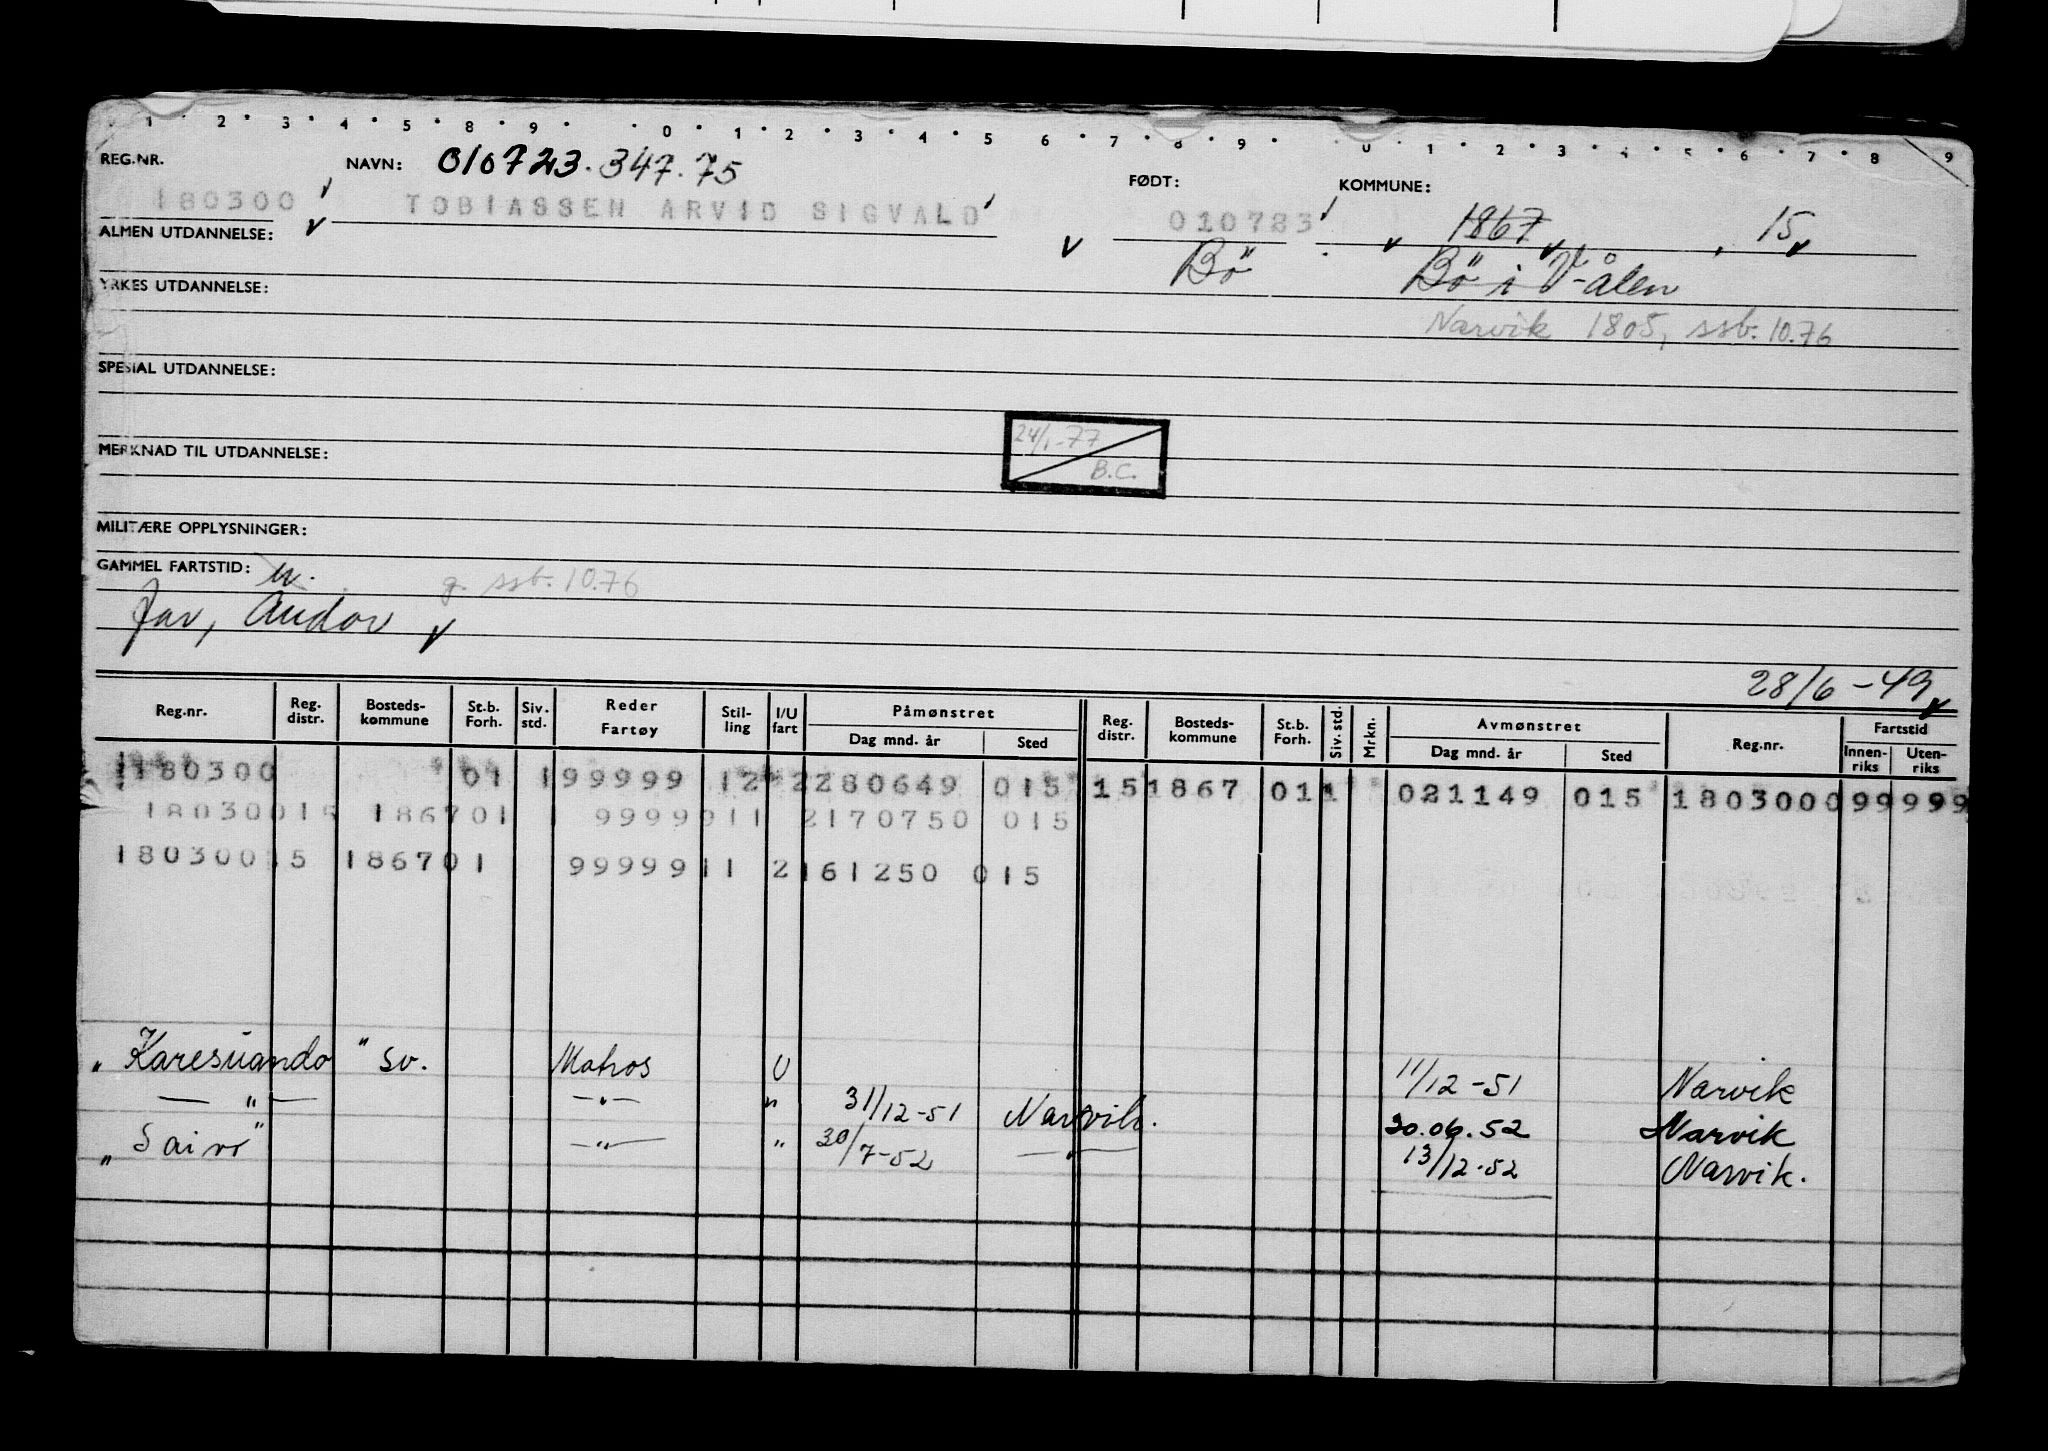 1 2 3 4 5 8 9 0 1 2 3 4 5 6 7 8 9 0 1 2 3 4 5 6 7 8 9
REG.NR. NAVN: 010723.347.75 FØDT: KOMMUNE:
180300 TOBIASSEN ARVID SIGVALD 010723 1867 15
ALMEN UTDANNELSE: Bö Bö i V-ålen
YRKES UTDANNELSE:
Narvik 1805, ssb. 10.76
SPESIAL UTDANNELSE:
24/1-77
MERKNAD TIL UTDANNELSE:
B.C.
MILITÆRE OPPLYSNINGER:
GAMMEL FARTSTID: u. g. ssb. 10.76
Far, Andor
28/6-49
Reg.nr. Reg. distr. Bosteds- kommune St.b. Forh. Siv. std. Reder Fartøy Stil- ling I/U fart Påmønstret Dag mnd. år Sted Reg. distr. Bosteds- kommune St.b. Forh. Siv. std. Mrkn. Avmønstret Dag mnd. år Sted Reg.nr. Fartstid Innen- riks Uten- riks
180300 01 199999 12 2280649 015 15 1867 011 021149 015 1803000 99 999
18030015 186701 1 9999911 2170750 015
18030015 186701 9999911 2161250 015
„Karesuando" Sv. Matros U 11/12-51 Narvik
— " — — " — " 31/12-51 Narvik. 30.06.52 Narvik
„Saivo" — " — " 30/7-52 — " — 13/12-52 Narvik.